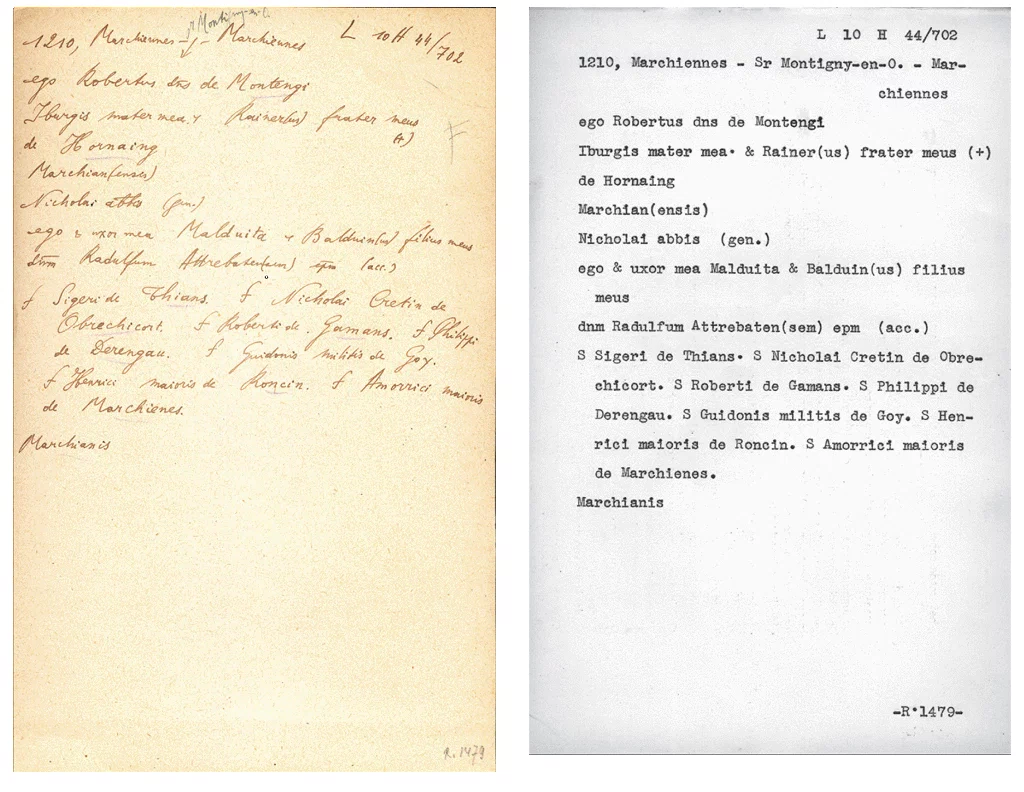 r Montigny-en-O.
1210, Marchiennes - Marchiennes L 10 H 44/702
ego Robertus dns de Montengi
Iburgis mater mea. & Rainer(us) frater meus
(+)
de Hornaing
F
Marchian(enses)
Nicholai abbis (gen.)
ego & uxor mea Malduita & Balduin(us) filius meus
dnm Radulfum Attrebaten(sem) epm (acc.)
S Sigeri de Thians. S Nicholai Cretin de
Obrechicort. S Roberti de Gamans. S Philippi
de Derengau. S Guidonis militis de Goy.
S Henrici maioris de Roncin. S Amorrici maioris
de Marchienes.
Marchianis
R.1479
L 10 H 44/702
1210, Marchiennes - Sr Montigny-en-O. - Mar-
chiennes
ego Robertus dns de Montengi
Iburgis mater mea. & Rainer(us) frater meus (+)
de Hornaing
Marchian(ensis)
Nicholai abbis (gen.)
ego & uxor mea Malduita & Balduin(us) filius
meus
dnm Radulfum Attrebaten(sem) epm (acc.)
S Sigeri de Thians. S Nicholai Cretin de Obre-
chicort. S Roberti de Gamans. S Philippi de
Derengau. S Guidonis militis de Goy. S Hen-
rici maioris de Roncin. S Amorrici maioris
de Marchienes.
Marchianis
-R.1479-